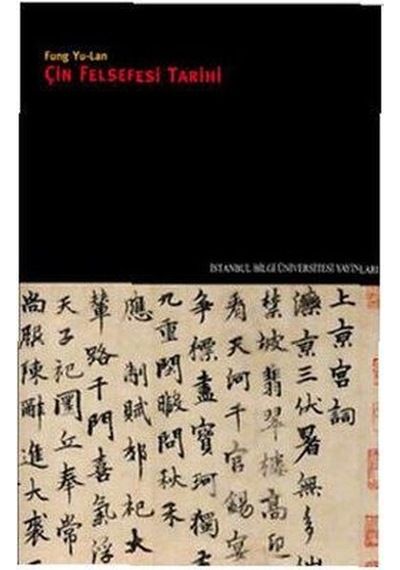 Fung Yu-Lan
ÇİN FELSEFESİ TARİHİ
İSTANBUL BİLGİ ÜNİVERSİTESİ YAYINLARI
上京宮詞
灤京三伏暑無多
禁坡翡翠樓高迎
看天河千官錫宴
爭標盡寶珂獨
九重閑暇問秋禾
應制賦郊祀大
輦路千門喜氣浮
天子祀圜丘奉常
尚服陳辭進大裘